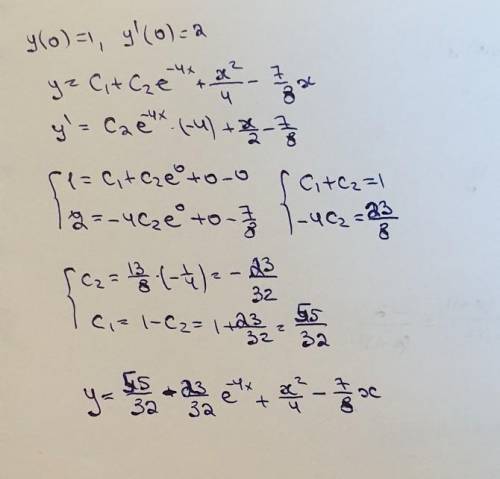 y(0)=1, y'(0)=2
y = C₁+C₂e^{-4x}+\frac{x²}{4}-\frac{7}{8}x
y' = C₂e^{-4x}·(-4)+\frac{x}{2}-\frac{7}{8}
{1=C₁+C₂e⁰+0-0 {C₁+C₂=1
{2=-4C₂e⁰+0-\frac{7}{8} {-4C₂=\frac{23}{8}
{C₂=\frac{13}{8}·(-\frac{1}{4})=-\frac{23}{32}
{C₁=1-C₂=1+\frac{23}{32}=\frac{55}{32}
y=\frac{55}{32}-\frac{23}{32}e^{-4x}+\frac{x²}{4}-\frac{7}{8}x